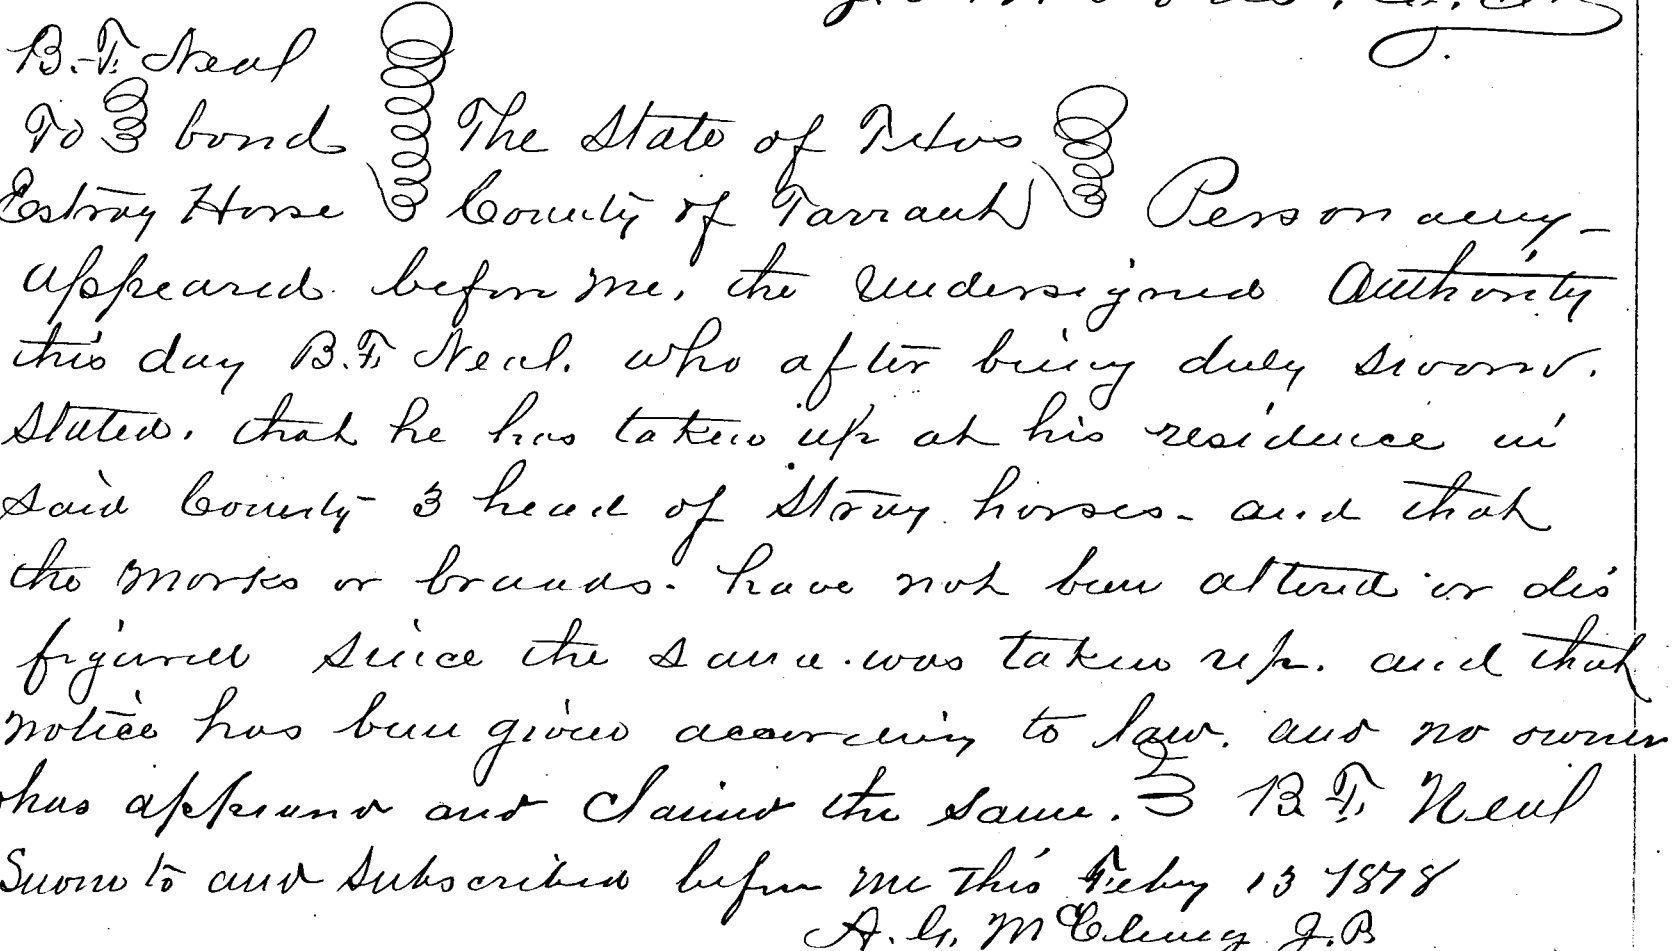 B.F. Neal
To bond The State of Texas
Estray Horse County of Tarrant Personally
appeared before me, the undersigned Authority
this day B.F. Neal. who after being duly sworn.
Stated. that he has taken up at his residence in
said County 3 head of Stray horses - and that
the marks or brands. have not been altered or dis
figured since the same was taken up. and that
notice has been given according to law. and no owner
has appeared and claimed the same. B F. Neal
Sworn to and subscribed before me this Feby 13 1878
A. G. McClung J.P.